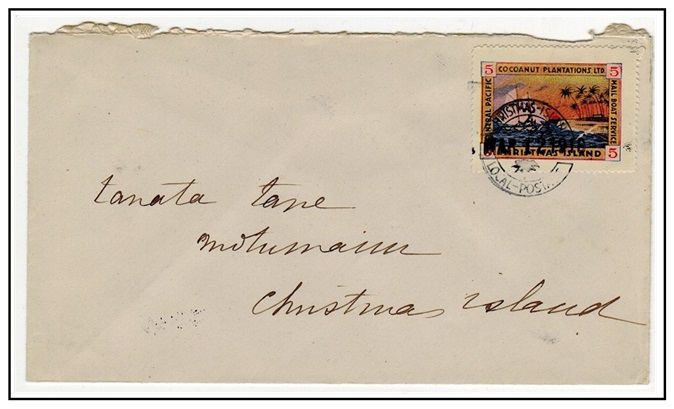 COCOANUT PLANTATIONS LTD
5 5
CENTRAL PACIFIC
MAIL BOAT SERVICE
5 5
CHRISTMAS ISLAND
CHRISTMAS-ISLAND
LOCAL-POST
tanata tane
Christmas island